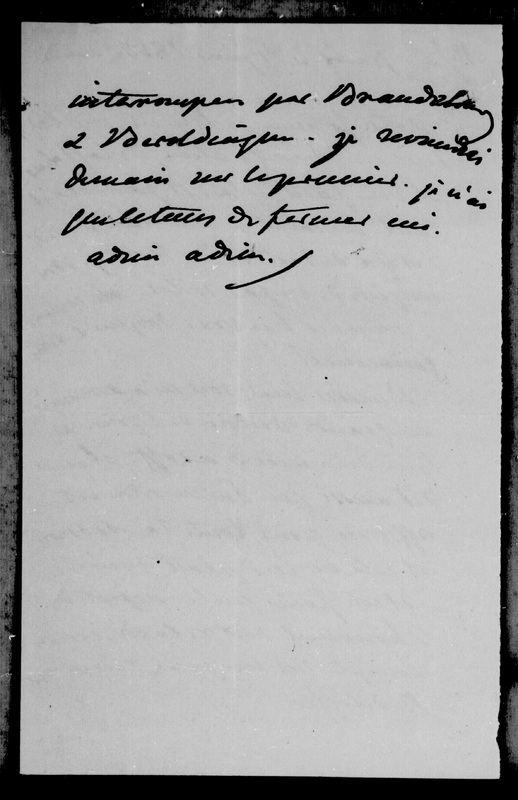 interrompu par Brandebourg
& Beroldingen. je reviendrai
demain sur le premier. je n'ai
que le tems de fermer ici.
adieu adieu.